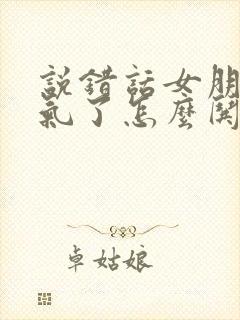 說錯話女朋
氣了怎麼開
卓姑娘